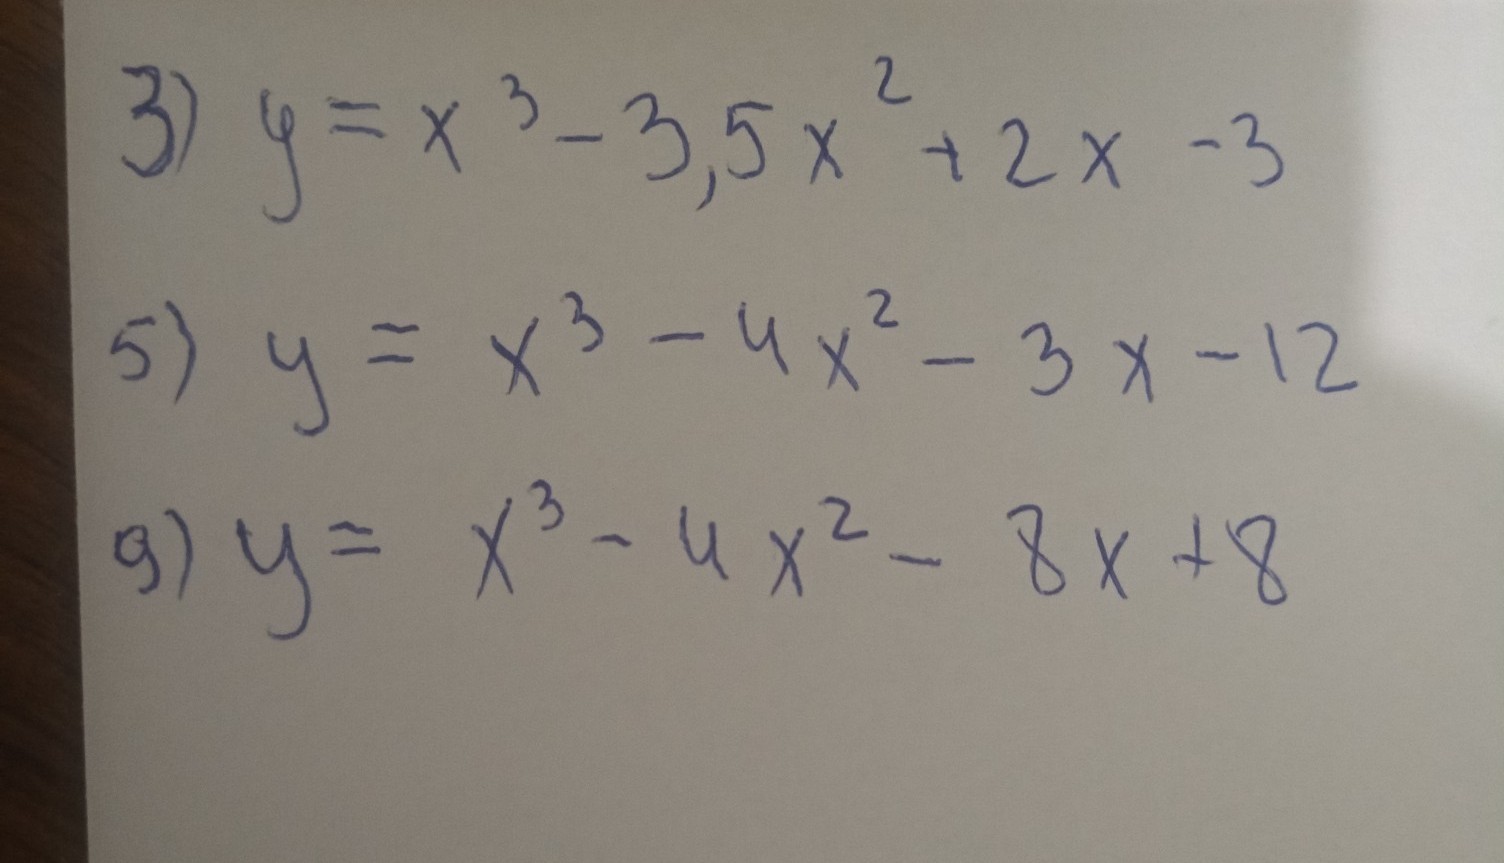 3) y = x³ - 3,5x² + 2x - 3
5) y = x³ - 4x² - 3x - 12
9) y = x³ - 4x² - 8x + 8